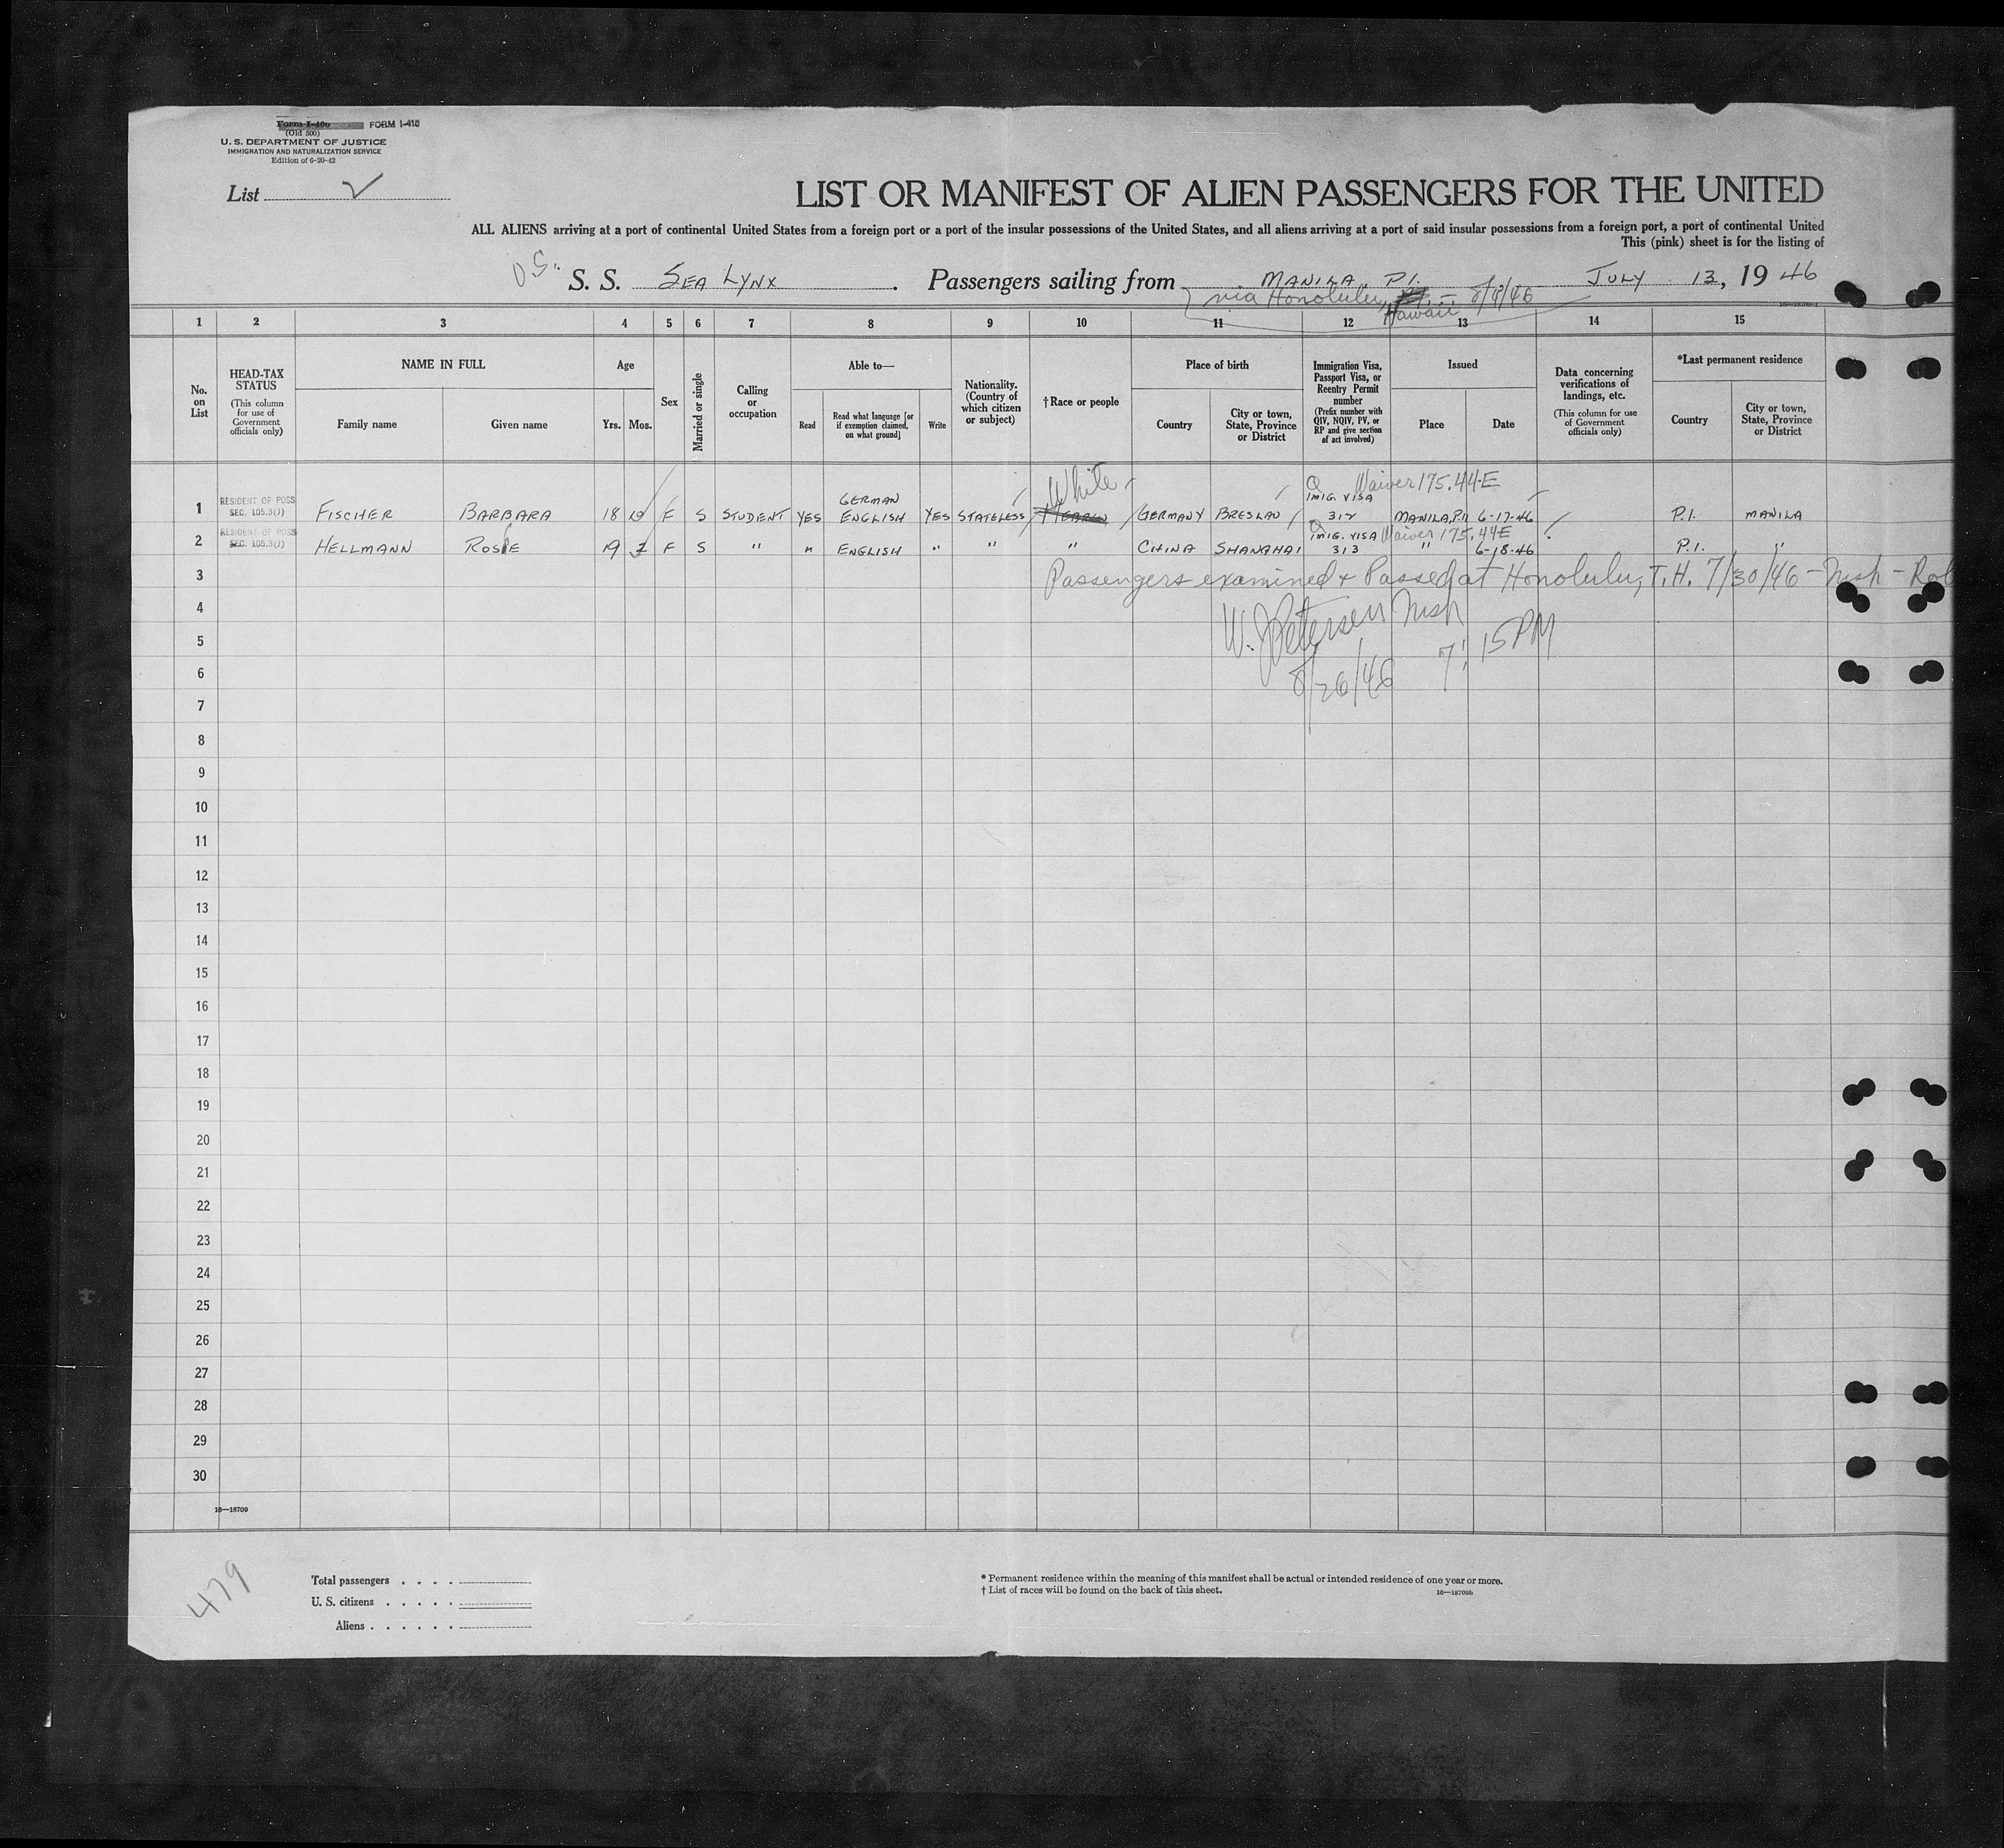 Form I-466 FORM I-415
(Old 500)
U. S. DEPARTMENT OF JUSTICE
IMMIGRATION AND NATURALIZATION SERVICE
Edition of 6-20-42
List ✓
LIST OR MANIFEST OF ALIEN PASSENGERS FOR THE UNITED
ALL ALIENS arriving at a port of continental United States from a foreign port or a port of the insular possessions of the United States, and all aliens arriving at a port of said insular possessions from a foreign port, a port of continental United
This (pink) sheet is for the listing of
S. S. SEA LYNX . Passengers sailing from MANILA, P.I. JULY 13, 19 46
via Honolulu, Hawaii
1 2 3 4 5 6 7 8 9 10 11 12 13 14 15
No. on List
HEAD-TAX STATUS
(This column for use of Government officials only)
NAME IN FULL
Family name Given name
Age
Yrs. Mos.
Sex
Married or single
Calling or occupation
Able to—
Read Read what language [or if exemption claimed, on what ground] Write
Nationality. (Country of which citizen or subject)
†Race or people
Place of birth
Country City or town, State, Province or District
Immigration Visa, Passport Visa, or Reentry Permit number
(Prefix number with QIV, NQIV, PV, or RP and give section of act involved)
Issued
Place Date
Data concerning verifications of landings, etc.
(This column for use of Government officials only)
*Last permanent residence
Country City or town, State, Province or District
White Q Waiver 175.44-E
RESIDENT OF POSS GERMAN IMIG. VISA
1 SEC. 105.3(J) FISCHER BARBARA 18 F S STUDENT YES ENGLISH YES STATELESS GERMANY BRESLAU 312 MANILA, P.I. 6-17-46 P.I. MANILA
RESIDENT OF POSS Q IMIG. VISA Waiver 175.44E
2 SEC. 105.3(J) HELLMANN ROSIE 19 F S " " ENGLISH " " " CHINA SHANGHAI 313 " 6-18-46 P.I. "
3 Passengers examined & Passed at Honolulu, T.H. 7/30/46
4 W. J. Petersen
5 7:15 PM
6 8/26/46
7
8
9
10
11
12
13
14
15
16
17
18
19
20
21
22
23
24
25
26
27
28
29
30
16—18709
479
Total passengers . . . .
U. S. citizens . . . . .
Aliens . . . . . .
* Permanent residence within the meaning of this manifest shall be actual or intended residence of one year or more.
† List of races will be found on the back of this sheet. 16—18709b